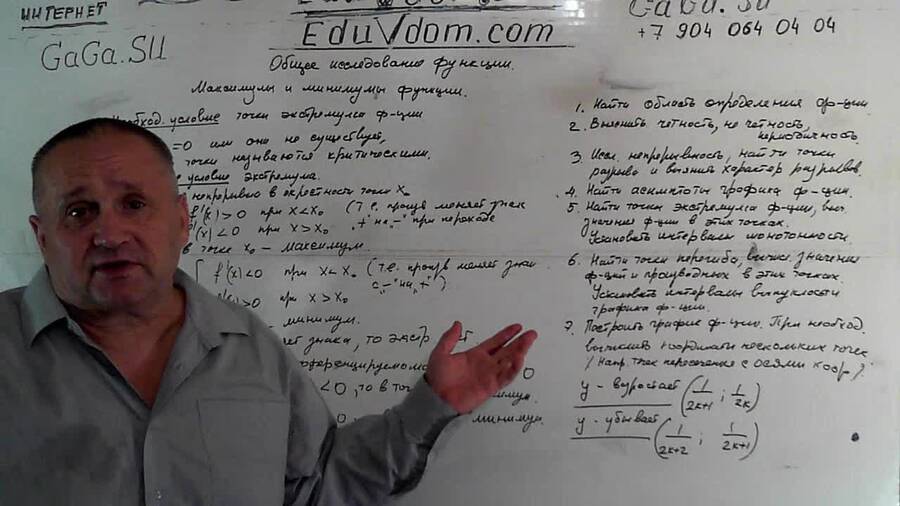 ИНТЕРНЕТ
GaGa.SU
EduVdom.com
GaGa.SU
+7 904 064 04 04
Общее исследование функции.
Максимумы и минимумы функции.
условие точки экстремума ф-ции
=0 или оно не существует,
точки называются критическими.
условие экстремума.
непрерывно в окрестности точки x₀
f'(x)>0 при x<x₀ (т.е. произв меняет знак
f'(x)<0 при x>x₀ „+" на „-" при переходе
в точке x₀ - максимум.
f'(x)<0 при x<x₀ (т.е. произв меняет знак
с „-" на „+")
>0 при x>x₀
минимум.
знака, то
<0, то в
минимум.
1. Найти область определения ф-ции
2. Выяснить четность, не четность,
периодичность
3. Иссл. непрерывность, найти точки
разрыва и выяснить характер разрывов.
4. Найти асимптоты графика ф-ции.
5. Найти точки экстремума ф-ции, выч.
значения ф-ции в этих точках.
Установить интервалы монотонности.
6. Найти точки перегиба, вычисл. значения
ф-ции и производных в этих точках.
Установить интервалы выпуклости
графика ф-ции.
7. Построить график ф-ции. При необход.
вычислить координаты нескольких точек
(Напр. точек пересечения с осями коор.)
y - возрастает (1/2k+1 ; 1/2k)
y - убывает (1/2k+2 ; 1/2k+1)